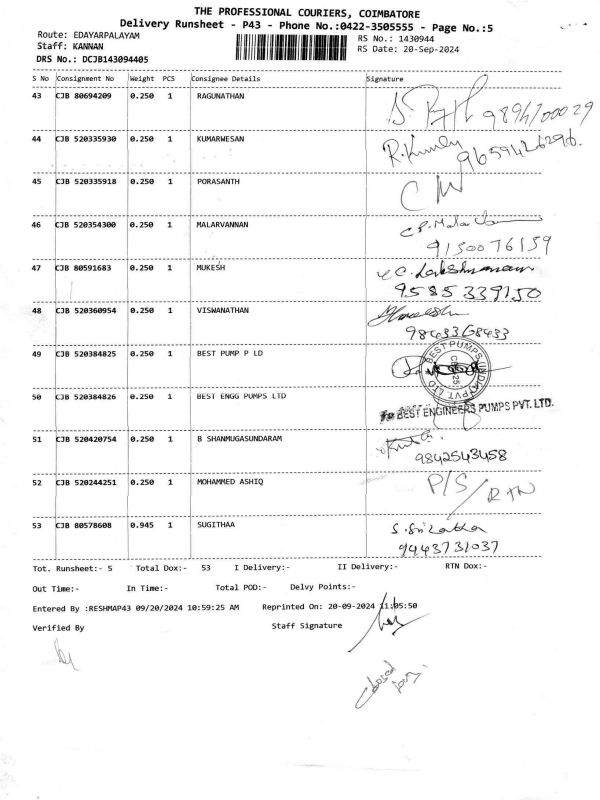 THE PROFESSIONAL COURIERS, COIMBATORE
Delivery Runsheet - P43 - Phone No.:0422-3505555 - Page No.:5
Route: EDAYARPALAYAM RS No.: 1430944
Staff: KANNAN RS Date: 20-Sep-2024
DRS No.: DCJB143094405
S No Consignment No Weight PCS Consignee Details Signature
43 CJB 80694209 0.250 1 RAGUNATHAN
9894700029
44 CJB 520335930 0.250 1 KUMARWESAN R.Kumly
9659426296.
45 CJB 520335918 0.250 1 PORASANTH
46 CJB 520354300 0.250 1 MALARVANNAN
9150076159
47 CJB 80591683 0.250 1 MUKESH C. Lakshmanan
9585339150
48 CJB 520360954 0.250 1 VISWANATHAN
9843368433
49 CJB 520384825 0.250 1 BEST PUMP P LD
BEST PUMPS (INDIA) PVT. LTD
50 CJB 520384826 0.250 1 BEST ENGG PUMPS LTD
For BEST ENGINEERS PUMPS PVT. LTD.
51 CJB 520420754 0.250 1 B SHANMUGASUNDARAM
9842543458
52 CJB 520244251 0.250 1 MOHAMMED ASHIQ P/S / RTN
53 CJB 80578608 0.945 1 SUGITHAA S. Sri Latha
9443731037
Tot. Runsheet:- 5 Total Dox:- 53 I Delivery:- II Delivery:- RTN Dox:-
Out Time:- In Time:- Total POD:- Delvy Points:-
Entered By :RESHMAP43 09/20/2024 10:59:25 AM Reprinted On: 20-09-2024 11:05:50
Verified By Staff Signature
closed